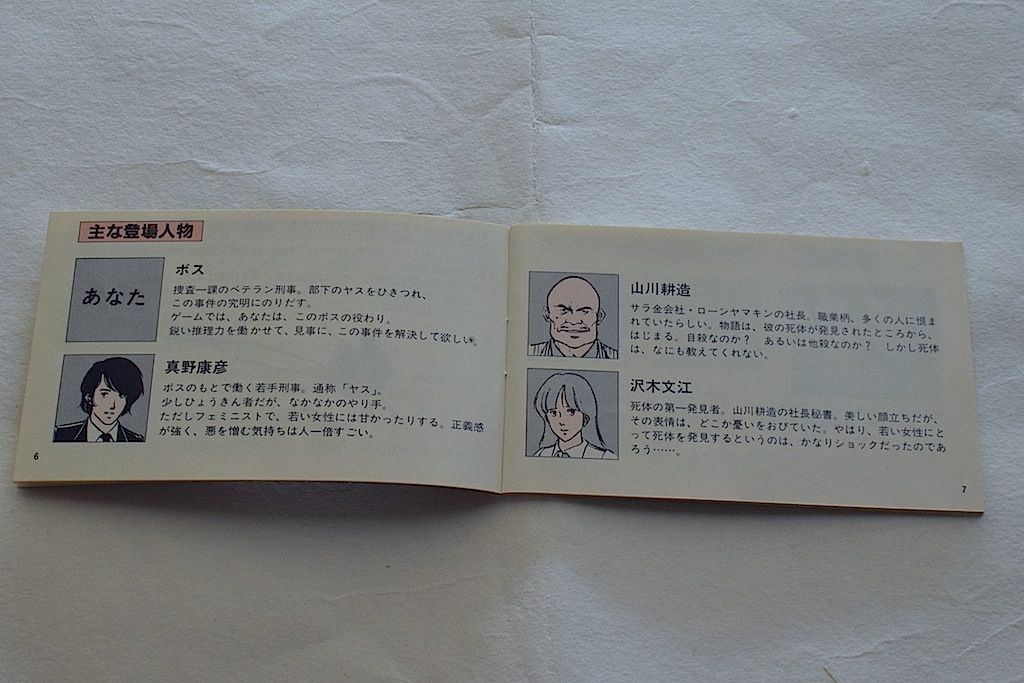 主な登場人物
あなた
ボス
捜査一課のベテラン刑事。部下のヤスをひきつれ、
この事件の究明にのりだす。
ゲームでは、あなたは、このボスの役わり。
鋭い推理力を働かせて、見事に、この事件を解決して欲しい。
真野康彦
ボスのもとで働く若手刑事。通称「ヤス」。
少しひょうきん者だが、なかなかのやり手。
ただしフェミニストで、若い女性には甘かったりする。正義感
が強く、悪を憎む気持ちは人一倍すごい。
6
山川耕造
サラ金会社・ローンヤマキンの社長。職業柄、多くの人に恨ま
れていたらしい。物語は、彼の死体が発見されたところから、
はじまる。自殺なのか？　あるいは他殺なのか？　しかし死体
は、なにも教えてくれない。
沢木文江
死体の第一発見者。山川耕造の社長秘書。美しい顔立ちだが、
その表情は、どこか憂いをおびていた。やはり、若い女性にと
って死体を発見するというのは、かなりショックだったのであ
ろう……。
7